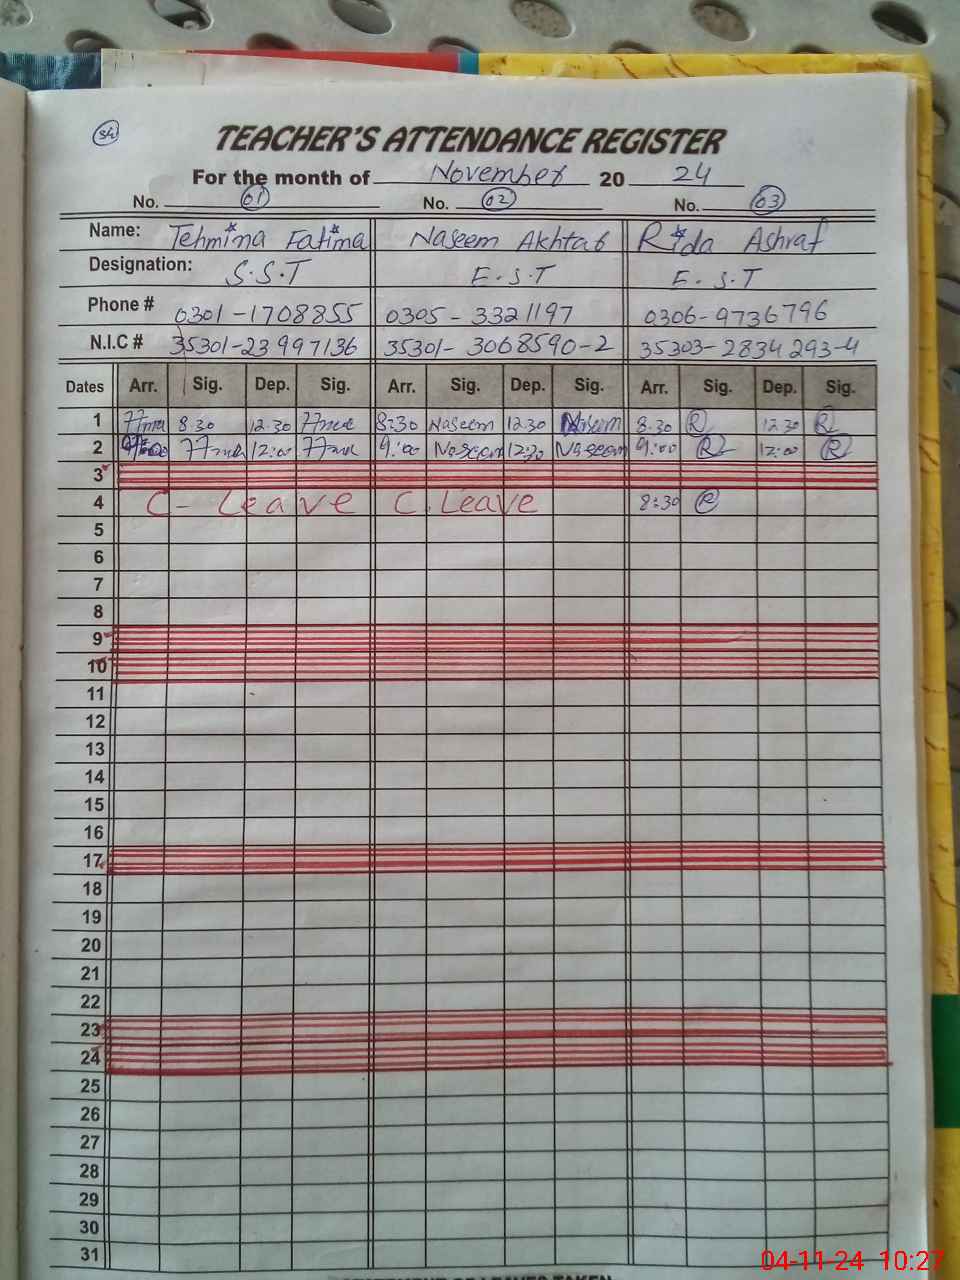 34
TEACHER'S ATTENDANCE REGISTER
For the month of November 20 24
No. 01 No. 02 No. 03
Name: Tehmina Fatima Naseem Akhtar Rida Ashraf
Designation: S.S.T E.S.T E.S.T
Phone # 0301-1708855 0305-3321197 0306-9736796
N.I.C # 35301-23997136 35301-3068590-2 35303-2834293-4
Dates Arr. Sig. Dep. Sig. Arr. Sig. Dep. Sig. Arr. Sig. Dep. Sig.
1 8.30 12.30 8:30 Naseem 12.30 Naseem 8.30 R 12.30 R
2 12:00 9:00 Naseem 12:30 Naseem 9:00 R 12:00 R
3
4 C- Leave C. Leave 8:30 R
5
6
7
8
9
10
11
12
13
14
15
16
17
18
19
20
21
22
23
24
25
26
27
28
29
30
31
04-11-24 10:27